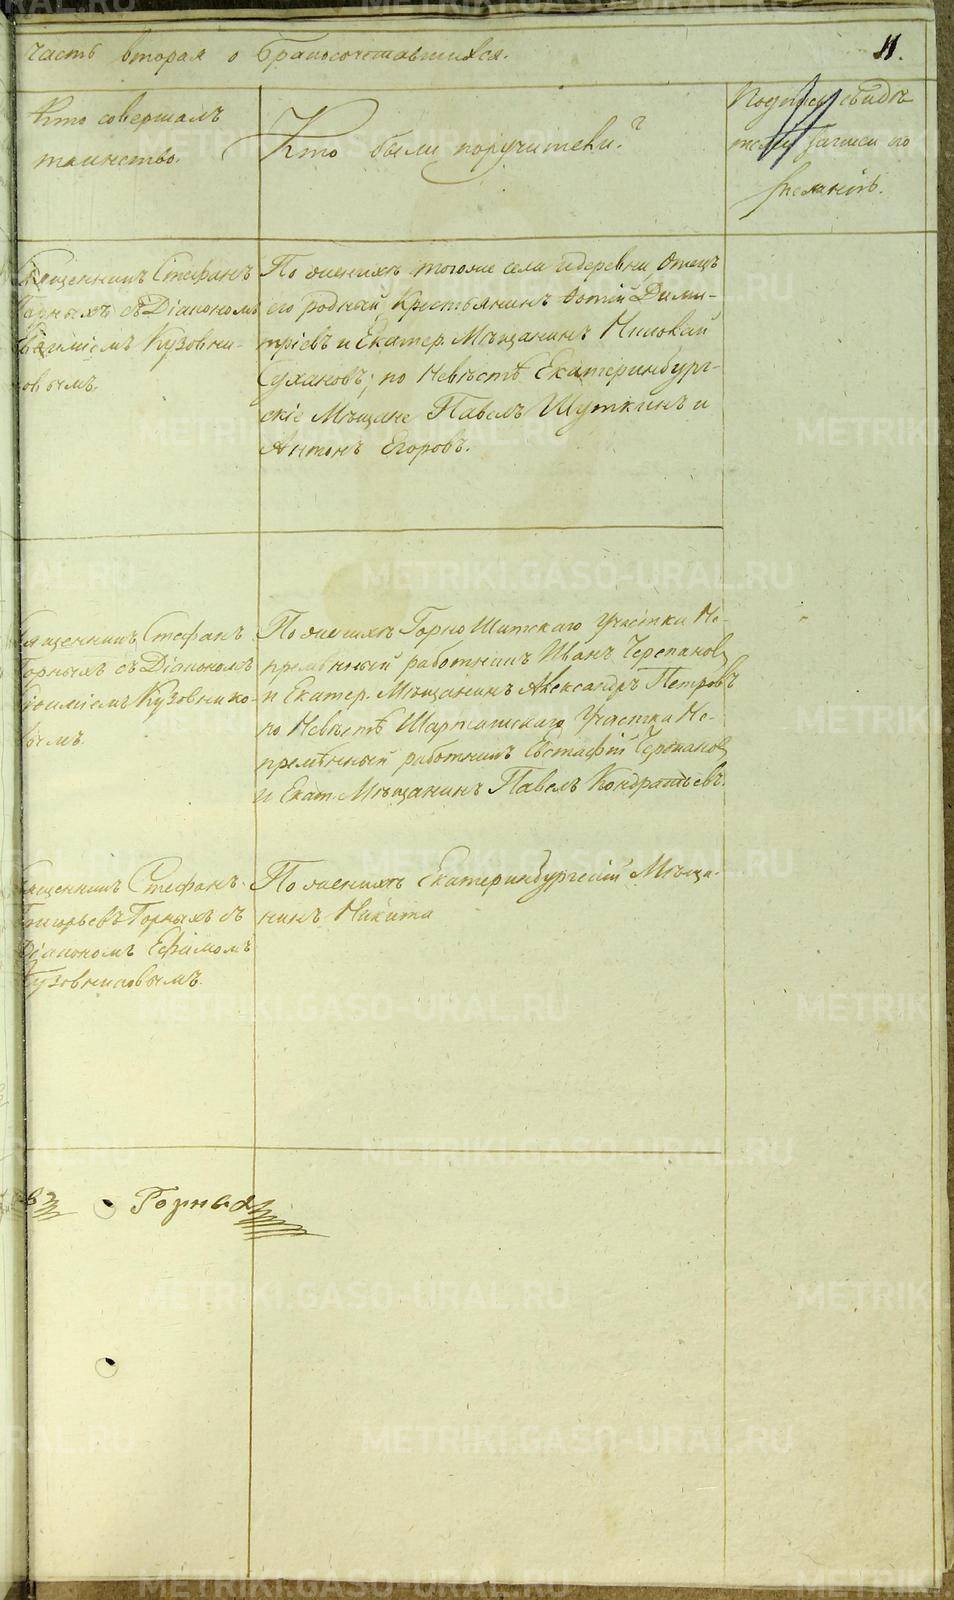 часть вторая о бракосочетавшихся.
11.
Кто совершалъ
таинство.
Кто были поручители?
Подпись свидѣ
телей записи по
желанію.
Священникъ Стефанъ
Горныхъ съ Діакономъ
Кузовни-
ковымъ.
По женихѣ тогоже села и деревни Отецъ
его родный Крестьянинъ Фотій Дими-
тріевъ и Екатер. Мѣщанинъ Николай
Сухановъ; по Невѣстѣ Екатеринбург-
скіе Мѣщане Павелъ Шуткинъ и
Антонъ Егоровъ.
Священникъ Стефанъ
Горныхъ съ Діакономъ
Кузовнико-
вымъ.
По женихѣ Горно Щитскаго Участка Не-
премѣнный работникъ Иванъ Черепановъ
и Екатер. Мѣщанинъ Александръ Петровъ
по Невѣстѣ Шарташскаго Участка Не-
премѣнный работникъ Евстафій Черепановъ
и Екат. Мѣщанинъ Павелъ Кондратьевъ.
Священникъ Стефанъ
Григорьевъ Горныхъ съ
Діакономъ Ефимомъ
Кузовниковымъ.
По женихѣ Екатеринбургскій Мѣща-
нинъ Никита
Горныхъ
METRIKI.GASO-URAL.RU